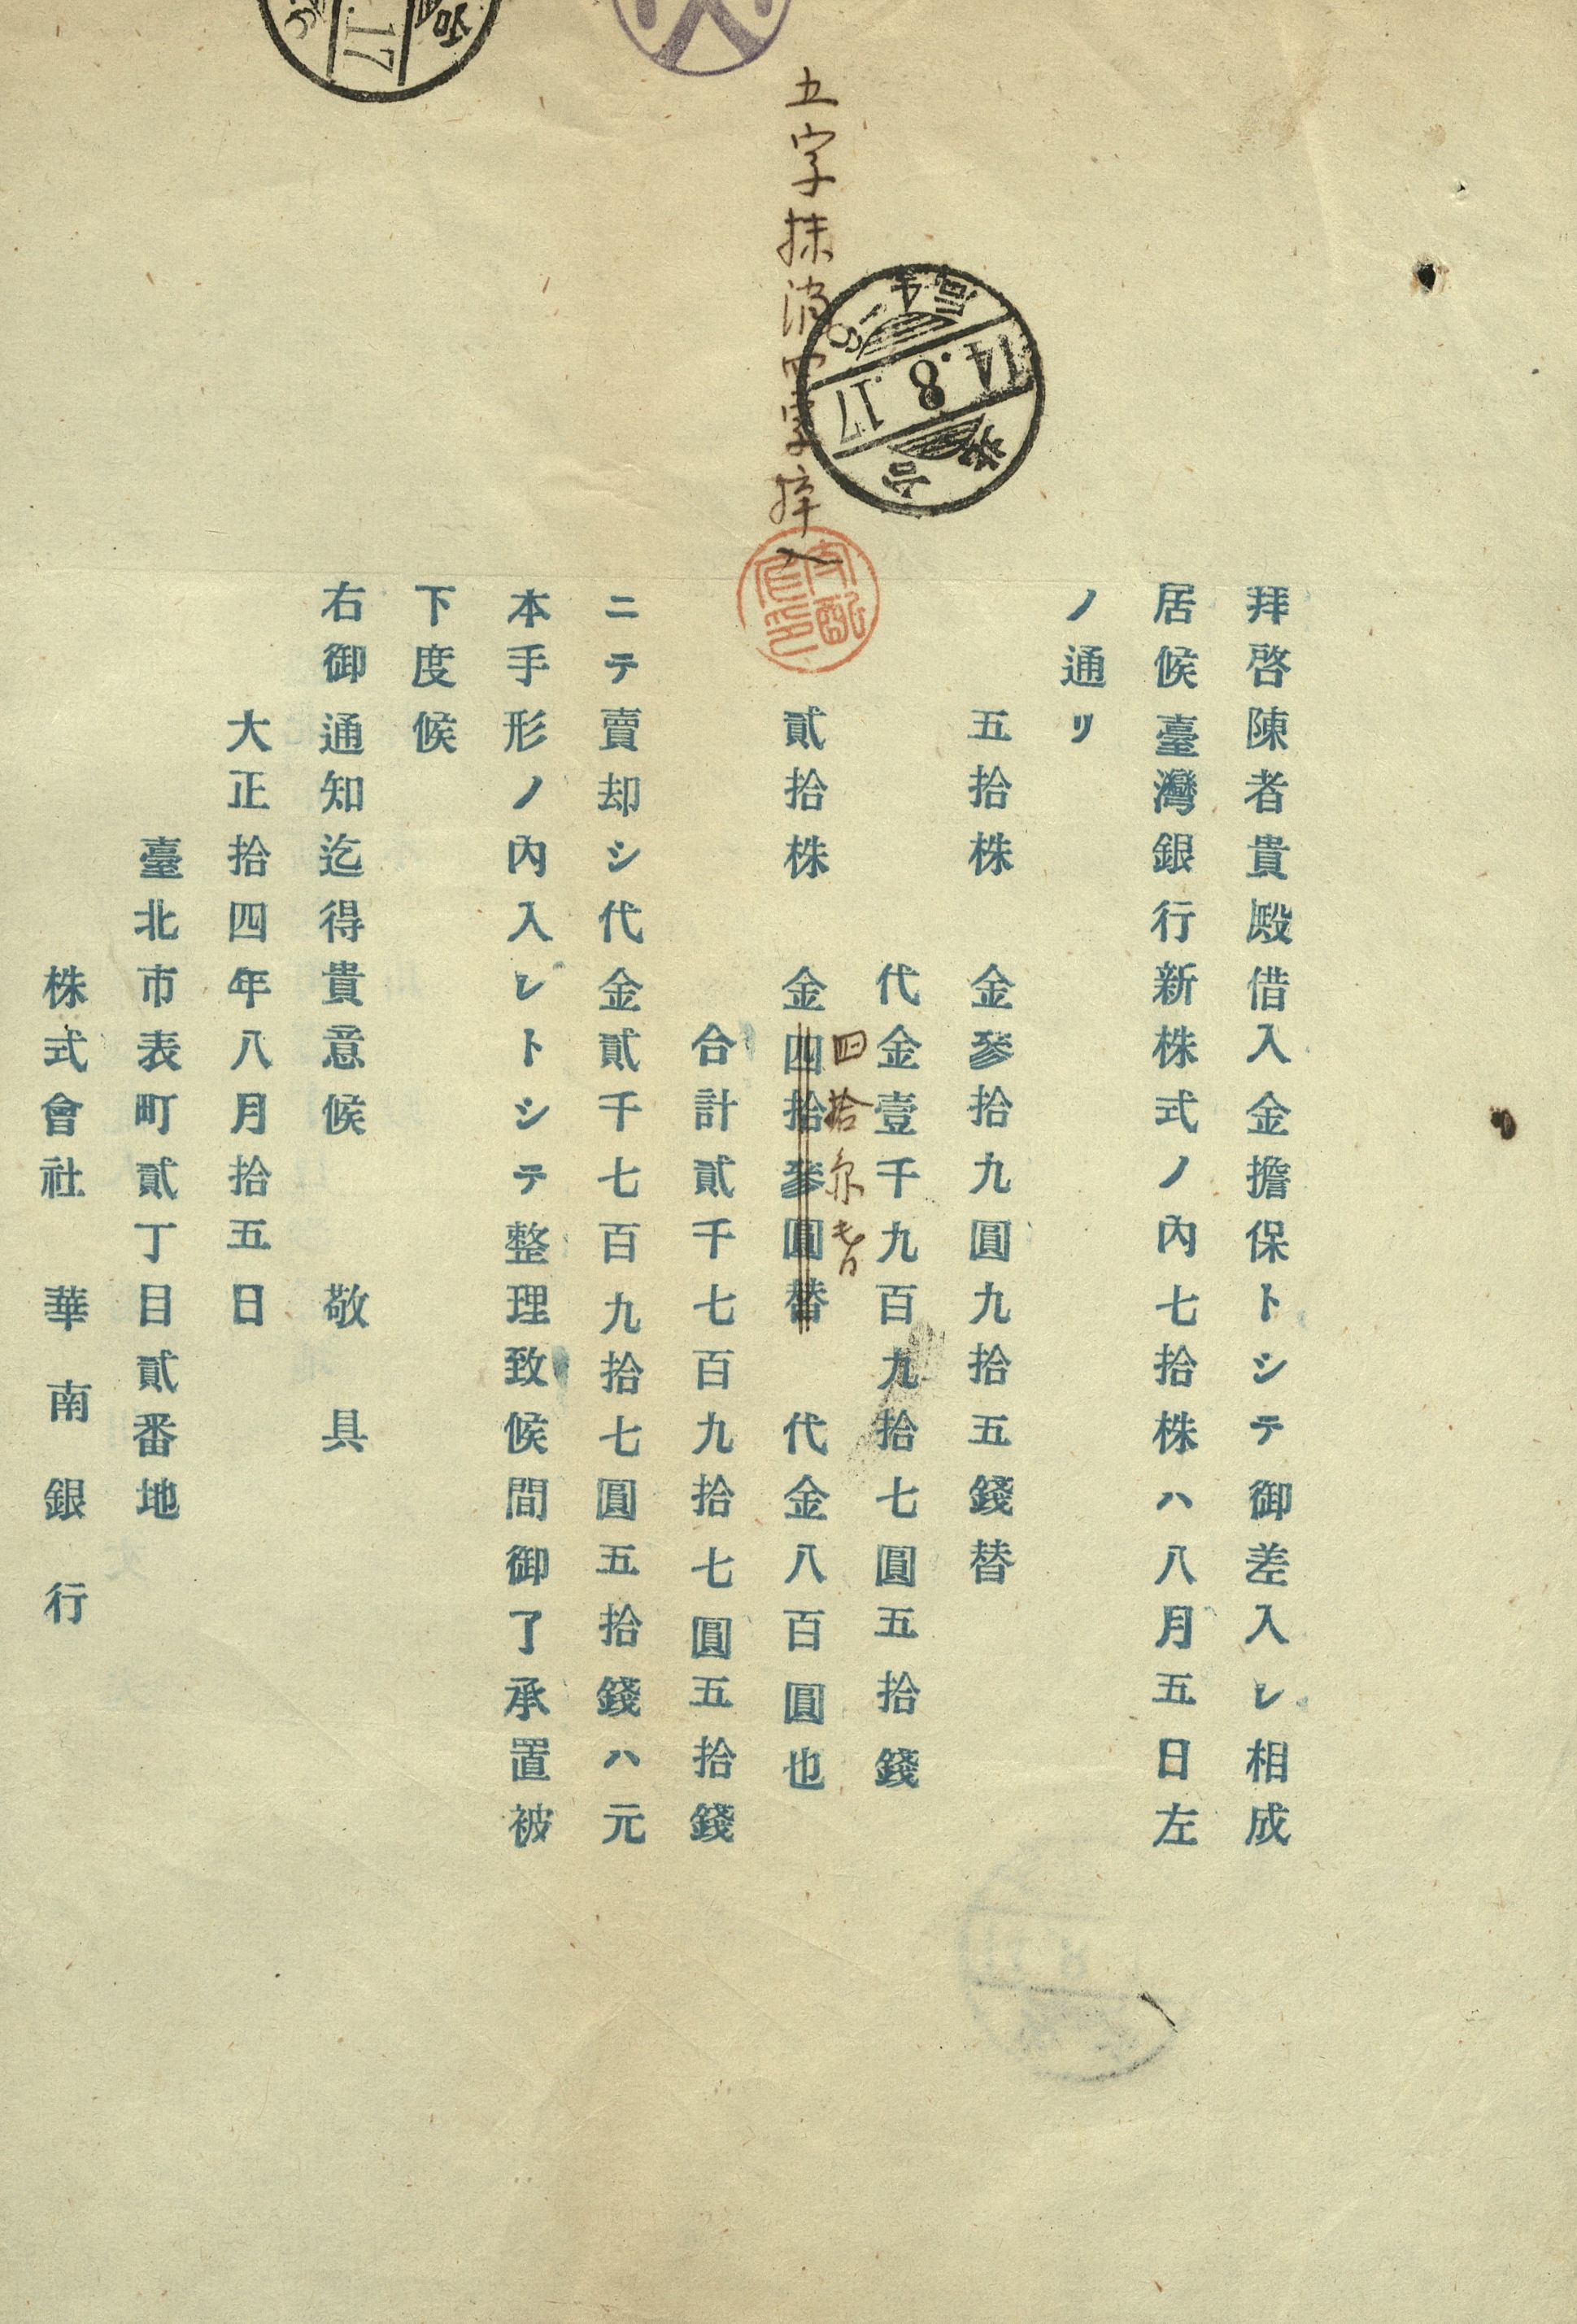 五字抹消四字挿入
拜啓陳者貴殿借入金擔保トシテ御差入レ相成
居候臺灣銀行新株式ノ內七拾株ハ八月五日左
ノ通リ
五拾株 金參拾九圓九拾五錢替
代金壹千九百九拾七圓五拾錢
四拾尓替
貳拾株 金四拾參圓替 代金八百圓也
合計貳千七百九拾七圓五拾錢
ニテ賣却シ代金貳千七百九拾七圓五拾錢ハ元
本手形ノ內入レトシテ整理致候間御了承置被
下度候
右御通知迄得貴意候 敬具
大正拾四年八月拾五日
臺北市表町貳丁目貳番地
株式會社 華南銀行
14.8.17
支配人印
17